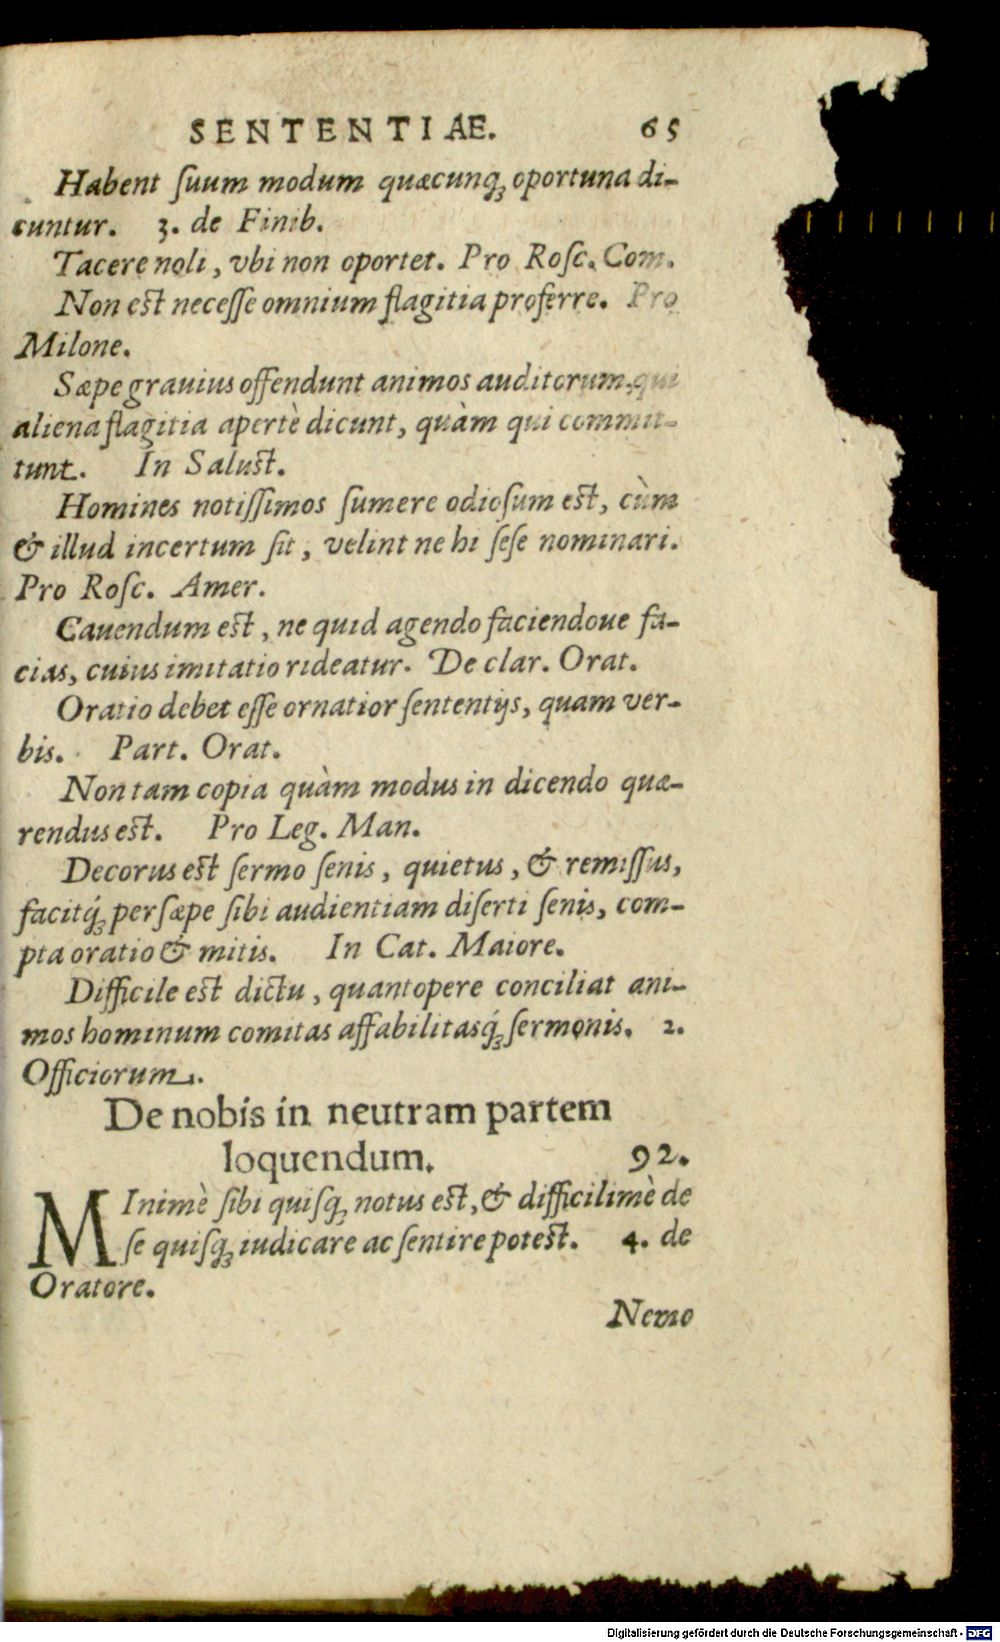 SENTENTIAE. 65
Habent ſuum modum quæcunq; oportuna di-
cuntur. 3. de Finib.
Tacere noli, vbi non oportet. Pro Roſc. Com.
Non est neceſſe omnium flagitia proferre. Pro
Milone.
Sæpe grauius offendunt animos auditorum, qui
aliena flagitia apertè dicunt, quàm qui commit-
tunt. In Saluſt.
Homines notiſſimos ſumere odioſum eſt, cùm
& illud incertum ſit, velint ne hi ſeſe nominari.
Pro Roſc. Amer.
Cauendum eſt, ne quid agendo faciendoue fa-
cias, cuius imitatio rideatur. De clar. Orat.
Oratio debet eſſe ornatior ſententijs, quam ver-
bis. Part. Orat.
Non tam copia quàm modus in dicendo quæ-
rendus eſt. Pro Leg. Man.
Decorus eſt ſermo ſenis, quietus, & remiſſus,
facitq́; per ſæpe ſibi audientiam diſerti ſenis, com-
pta oratio & mitis. In Cat. Maiore.
Difficile eſt dictu, quantopere conciliat ani-
mos hominum comitas affabilitasq́; ſermonis. 2.
Officiorum.
De nobis in neutram partem
loquendum. 92.
MInimè ſibi quiſq; notus eſt, & difficilimè de
ſe quiſq; iudicare ac ſentire poteſt. 4. de
Oratore.
Nemo
Digitalisierung gefördert durch die Deutsche Forschungsgemeinschaft - DFG